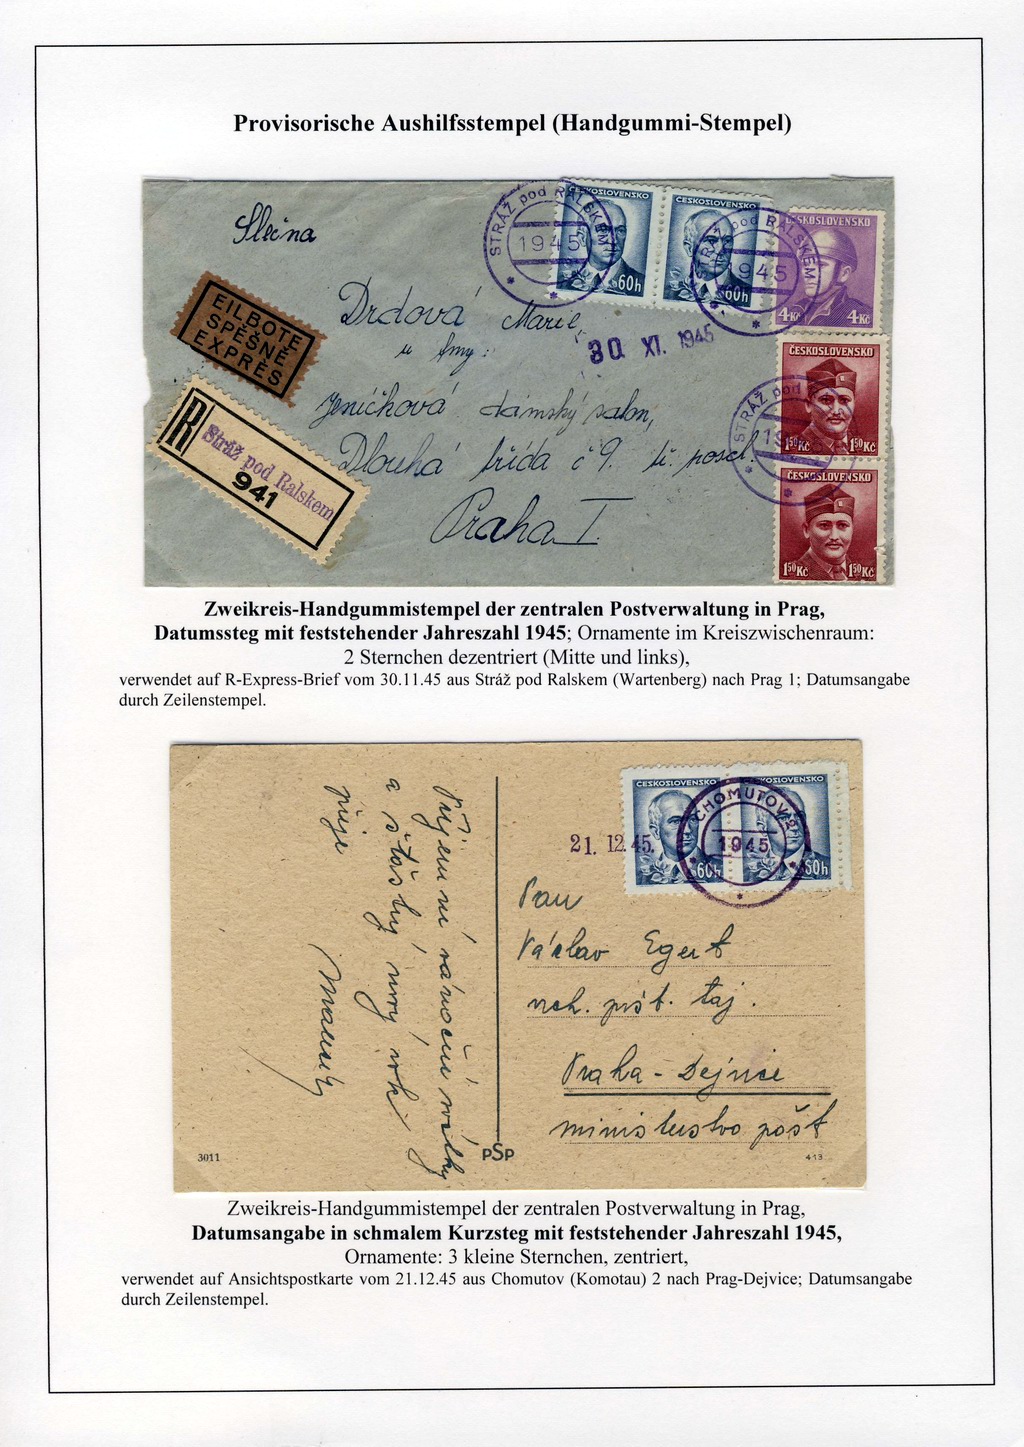 Provisorische Aushilfsstempel (Handgummi-Stempel)
Slečna
STRÁŽ pod RALSKEM
1945
ČESKOSLOVENSKO
60h
ČESKOSLOVENSKO
60h
STRÁŽ pod RALSKEM
1945
ČESKOSLOVENSKO
4Kč 4Kč
EILBOTE
SPĚŠNÉ
EXPRÈS
Drdová Marie
u fmy:
30. XI. 1945
ČESKOSLOVENSKO
150Kč 150Kč
STRÁŽ pod
R
Stráž pod Ralskem
941
Jeníchová dámský salon,
Dlouhá třída č 9. II. posch.
Praha I.
ČESKOSLOVENSKO
150Kč 150Kč
Zweikreis-Handgummistempel der zentralen Postverwaltung in Prag,
Datumssteg mit feststehender Jahreszahl 1945; Ornamente im Kreiszwischenraum:
2 Sternchen dezentriert (Mitte und links),
verwendet auf R-Express-Brief vom 30.11.45 aus Stráž pod Ralskem (Wartenberg) nach Prag 1; Datumsangabe
durch Zeilenstempel.
ČESKOSLOVENSKO
60h
ČESKOSLOVENSKO
60h
CHOMUTOV 2
1945
21. 12. 45.
Příjemné vánoční svátky
a šťastný nový rok
přeje
Pan
Václav Egert
pošt. taj.
Praha - Dejvice
ministerstvo pošt
3011
PSP
413
Zweikreis-Handgummistempel der zentralen Postverwaltung in Prag,
Datumsangabe in schmalem Kurzsteg mit feststehender Jahreszahl 1945,
Ornamente: 3 kleine Sternchen, zentriert,
verwendet auf Ansichtspostkarte vom 21.12.45 aus Chomutov (Komotau) 2 nach Prag-Dejvice; Datumsangabe
durch Zeilenstempel.